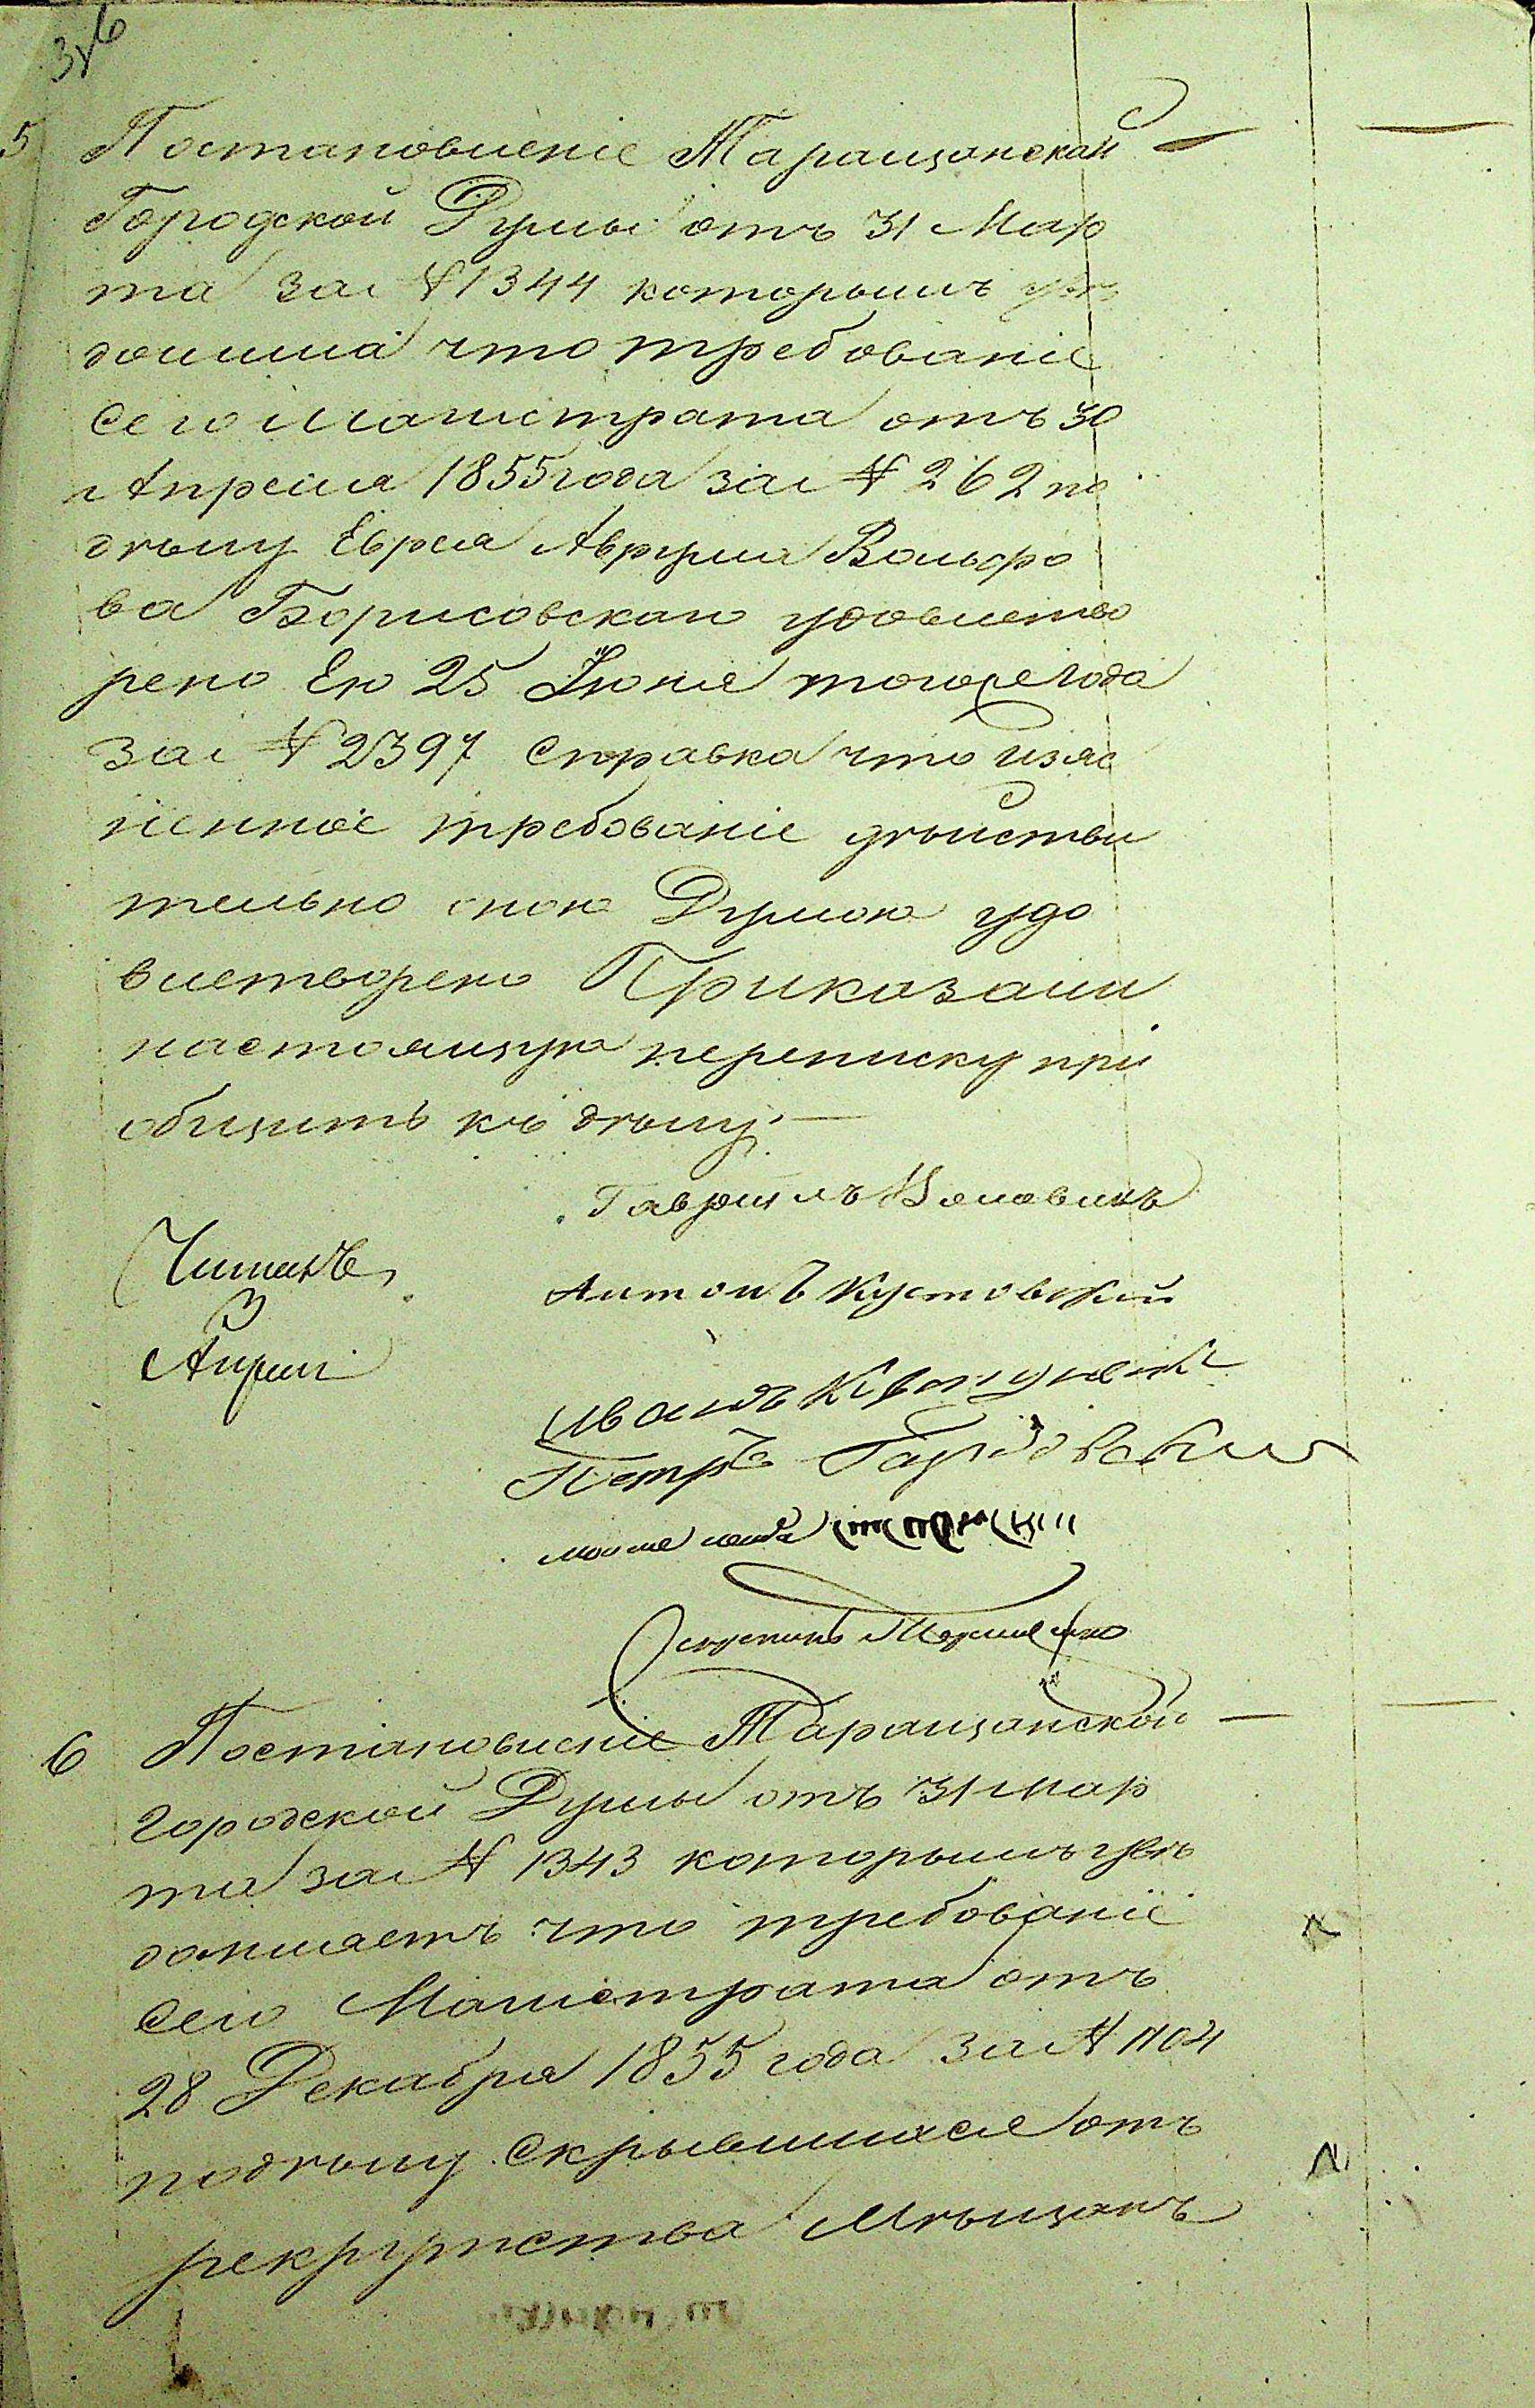 5 Постановленіе Таращанской
Городской Думы отъ 31 Мар
та за № 1344 которымъ увѣ
домила что требованіе
Сего Магистрата отъ 30
Апреля 1855 года за № 262 по
дѣлу Еврея Аврума Вольфо
ва Борисовскаго удовлетво
рено Ею 25 Іюня тогоже года
за № 2397 Справка что изяс
ненное требованіе дѣйстви
тельно оною Думою удо
влетворено Приказали
настоящую переписку при
общить къ дѣлу.
Гавриилъ
Читалъ
Антонъ Кустовскій
3
Апреля
Иванъ
Петръ
6 Постановленіе Таращанской
городской Думы отъ 31 мар
та за № 1343 которымъ увѣ
домляетъ что требованіе
Сего Магистрата отъ
28 Декабря 1855 года за № 1104
подѣлу Скрывшихся отъ
рекрутства Мѣщанъ